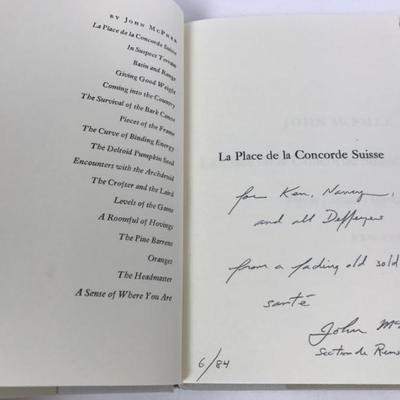 BY JOHN MCPHEE
La Place de la Concorde Suisse
In Suspect Terrain
Basin and Range
Giving Good Weight
Coming into the Country
The Survival of the Bark Canoe
Pieces of the Frame
The Curve of Binding Energy
The Deltoid Pumpkin Seed
Encounters with the Archdruid
The Crofter and the Laird
Levels of the Game
A Roomful of Hovings
The Pine Barrens
Oranges
The Headmaster
A Sense of Where You Are
La Place de la Concorde Suisse
for Ken, Nancy,
and all Deffeyes
from a fading old sold
santé
John Mc
Section de Rens
6/84